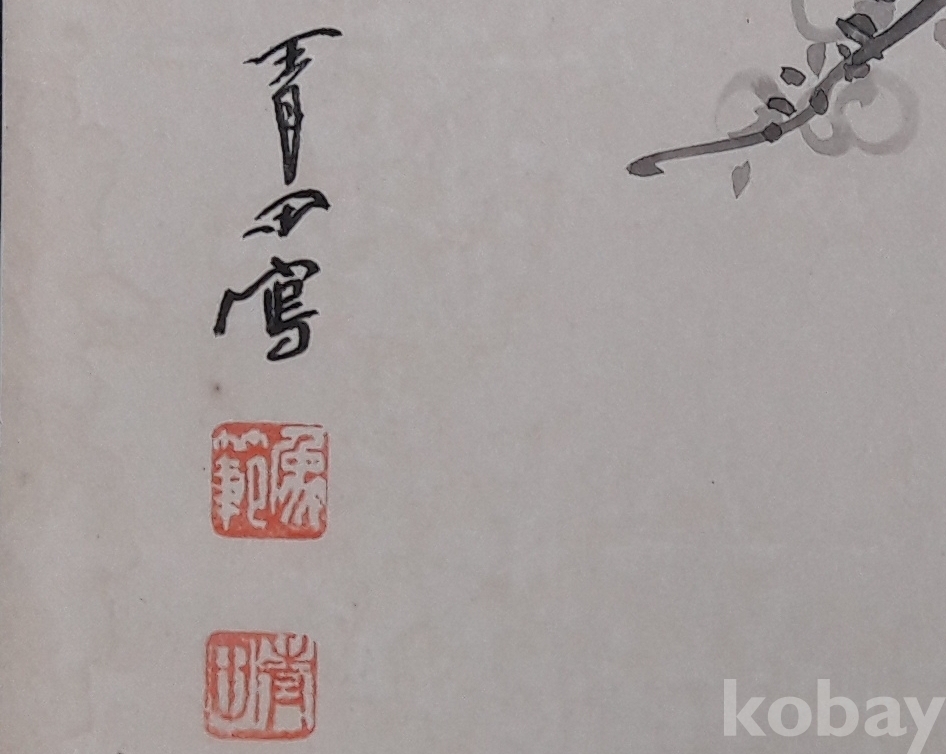 青田寫
象範
kobay